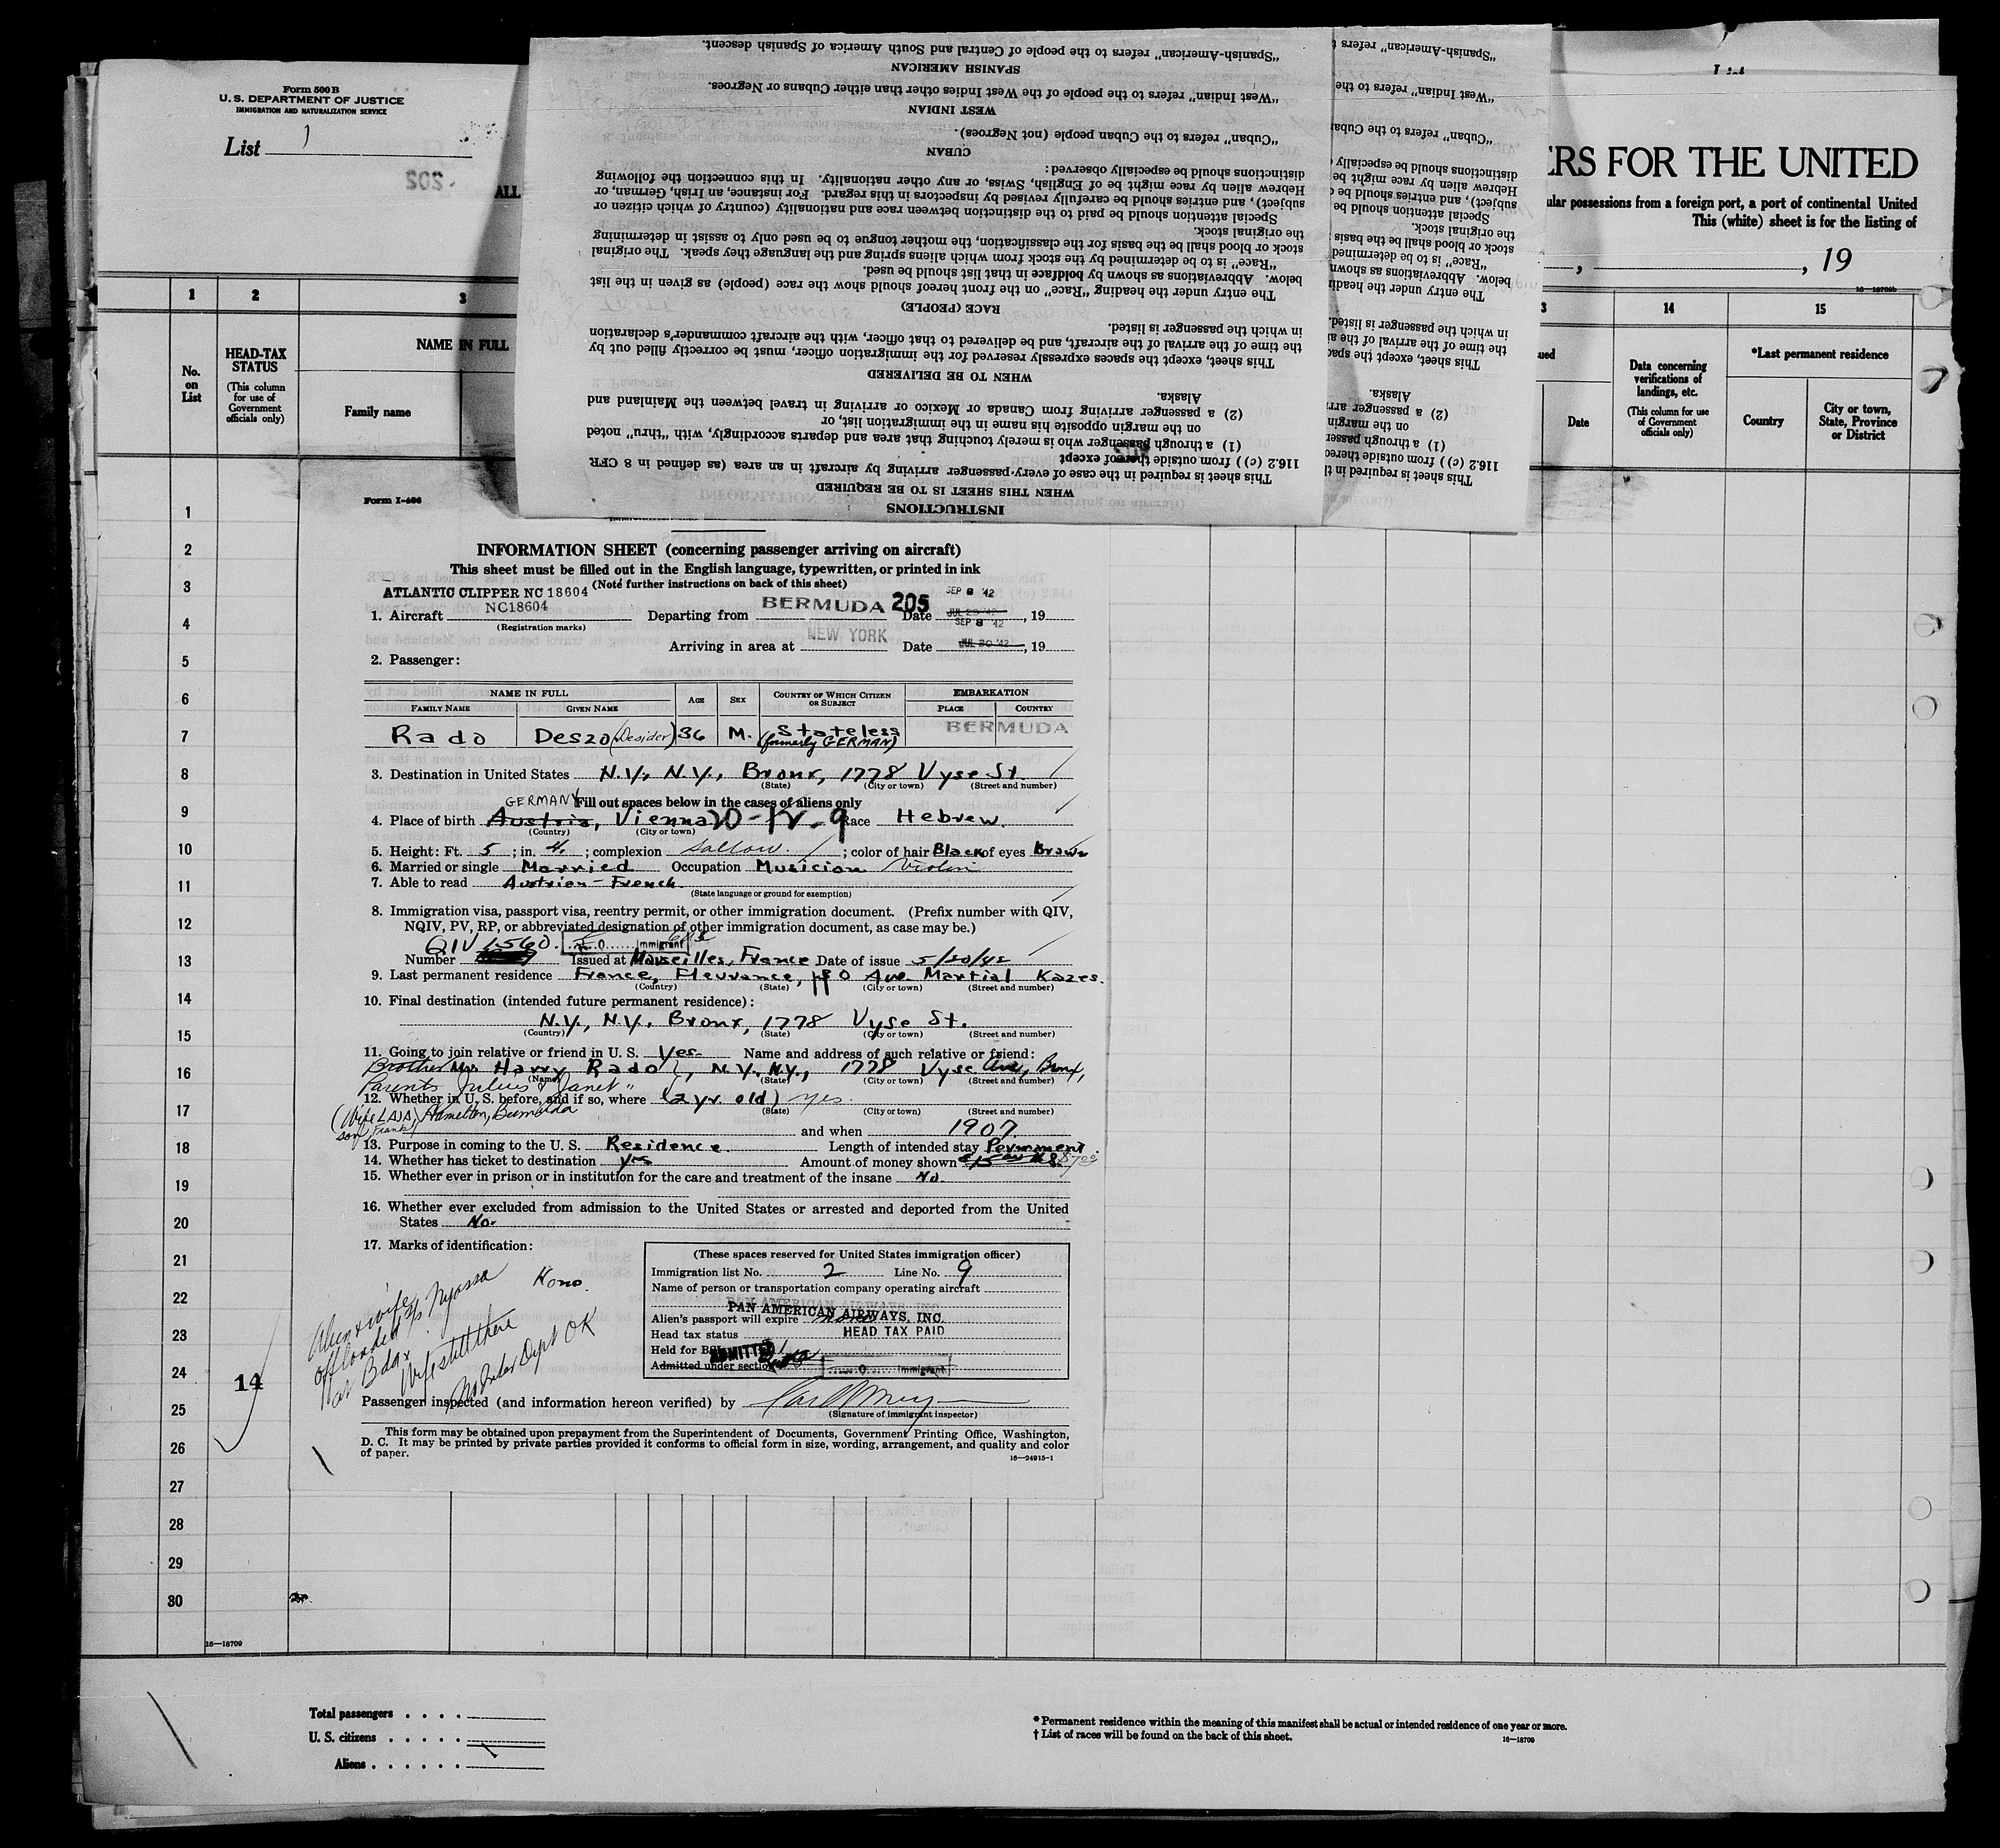 Form 500 B
U. S. DEPARTMENT OF JUSTICE
IMMIGRATION AND NATURALIZATION SERVICE
List 1
205
ALL
"Spanish-American" refers to the people of Central and South America of Spanish descent.
SPANISH AMERICAN
"West Indian" refers to the people of the West Indies other than either Cubans or Negroes.
WEST INDIAN
"Cuban" refers to the Cuban people (not Negroes).
CUBAN
distinctions should be especially observed:
Hebrew alien by race might be of English, Swiss, or any other nationality. In this connection the following
subject), and entries should be carefully revised by inspectors in this regard. For instance, an Irish, German, or
Special attention should be paid to the distinction between race and nationality (country of which citizen or
the original stock.
stock or blood shall be the basis for the classification, the mother tongue to be used only to assist in determining
"Race" is to be determined by the stock from which aliens spring and the language they speak. The original
below. Abbreviations as shown by boldface in that list should be used.
The entry under the heading "Race" on the front hereof should show the race (people) as given in the list
RACE (PEOPLE)
in which the passenger is listed.
the time of the arrival of the aircraft, and be delivered to that officer, with the aircraft commander's declaration
This sheet, except the spaces expressly reserved for the immigration officer, must be correctly filled out by
WHEN TO BE DELIVERED
Alaska.
(2) a passenger arriving from Canada or Mexico or arriving in travel between the Mainland and
on the margin opposite his name in the immigration list, or
(1) a through passenger who is merely touching that area and departs accordingly, with "thru" noted
116.2 (c)) from outside thereof except
This sheet is required in the case of every passenger arriving by aircraft in an area (as defined in 8 CFR
WHEN THIS SHEET IS TO BE REQUIRED
INSTRUCTIONS
"Spanish-American" refers t
"West Indian" refers to the
"Cuban" refers to the Cuban
distinctions should be especially
Hebrew alien by race might be
subject), and entries should be
Special attention should be
the original stock.
stock or blood shall be the basis
"Race" is to be determined
below. Abbreviations as shown
The entry under the headin
in which the passenger is listed.
the time of the arrival of the ai
This sheet, except the spac
Alaska.
(2) a passenger arri
on the margin
(1) a through passer
116.2 (c)) from outside thereo
This sheet is required in th
List
ERS FOR THE UNITED
ular possessions from a foreign port, a port of continental United
This (white) sheet is for the listing of
, , 19
16—18709b
1 2 3 3 14 15
No. on List
HEAD-TAX STATUS
(This column for use of Government officials only)
NAME IN FULL
Family name
ued
Date
Data concerning verifications of landings, etc.
(This column for use of Government officials only)
*Last permanent residence
Country
City or town, State, Province or District
Form I-466
INFORMATION SHEET (concerning passenger arriving on aircraft)
This sheet must be filled out in the English language, typewritten, or printed in ink
(Note further instructions on back of this sheet)
ATLANTIC CLIPPER NC 18604
SEP 8 '42
1. Aircraft NC18604 Departing from BERMUDA 205 Date JUL 29 '42, 19
(Registration marks)
SEP 8 '42
Arriving in area at NEW YORK Date JUL 30 '42, 19
2. Passenger:
NAME IN FULL AGE SEX COUNTRY OF WHICH CITIZEN OR SUBJECT EMBARKATION
FAMILY NAME GIVEN NAME PLACE COUNTRY
Rado Deszo (Desider) 36 M. Stateless (formerly GERMAN) BERMUDA
3. Destination in United States N.Y., N.Y., Bronx, 1778 Vyse St.
(State) (City or town) (Street and number)
GERMANY Fill out spaces below in the cases of aliens only
4. Place of birth Austria, Vienna 20-IV-9 Race Hebrew.
(Country) (City or town)
5. Height: Ft. 5; in. 4.; complexion Sallow.; color of hair Black of eyes Brown
6. Married or single Married Occupation Musician Violin
7. Able to read Austrian - French
(State language or ground for exemption)
8. Immigration visa, passport visa, reentry permit, or other immigration document. (Prefix number with QIV,
NQIV, PV, RP, or abbreviated designation of other immigration document, as case may be.)
QIV 1560. immigrant
Number Issued at Marseilles, France Date of issue 5/20/42
9. Last permanent residence France, Fleurance, Ave Martial Kazes.
(Country) (State) (City or town) (Street and number)
10. Final destination (intended future permanent residence):
N.Y., N.Y. Bronx, 1778 Vyse St.
(Country) (State) (City or town) (Street and number)
11. Going to join relative or friend in U. S. Yes. Name and address of such relative or friend:
Brother Mr Harry Rado, N.Y. N.Y., 1778 Vyse Ave, Bronx,
(Name) (State) (City or town) (Street and number)
Parents Julius & Janet "
12. Whether in U. S. before, and if so, where (2 yr. old) yes.
(State) (City or town) (Street and number)
(Wife Hamilton, Bermuda
son Frank)
and when 1907.
13. Purpose in coming to the U. S. Residence. Length of intended stay Permanent
14. Whether has ticket to destination yes Amount of money shown
15. Whether ever in prison or in institution for the care and treatment of the insane No.
16. Whether ever excluded from admission to the United States or arrested and deported from the United
States No.
17. Marks of identification:
None.
Alien & wife
offloaded s/s Nyassa
at Bda.
Wife still there
Dept OK
(These spaces reserved for United States immigration officer)
Immigration list No. 2 Line No. 9
Name of person or transportation company operating aircraft
PAN AMERICAN AIRWAYS, INC.
Alien's passport will expire
Head tax status HEAD TAX PAID
Held for BSI
ADMITTED
Admitted under section immigrant
Passenger inspected (and information hereon verified) by
(Signature of immigrant inspector)
This form may be obtained upon prepayment from the Superintendent of Documents, Government Printing Office, Washington,
D. C. It may be printed by private parties provided it conforms to official form in size, wording, arrangement, and quality and color
of paper.
16—24915-1
1
2
3
4
5
6
7
8
9
10
11
12
13
14
15
16
17
18
19
20
21
22
23
24
14
25
26
27
28
29
30
16—18709
Total passengers . . . .
U. S. citizens . . . . .
Aliens . . . . . .
* Permanent residence within the meaning of this manifest shall be actual or intended residence of one year or more.
† List of races will be found on the back of this sheet.
16—18709